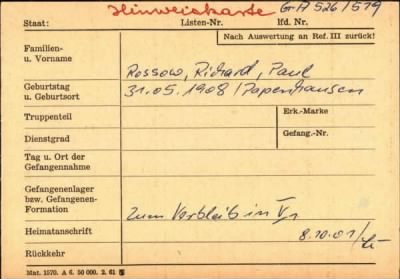 Hinweiskarte Gr A 526/519
Staat: Listen-Nr. lfd. Nr.
Nach Auswertung an Ref. III zurück!
Familien-
u. Vorname
Rossow, Richard, Paul
Geburtstag
u. Geburtsort
31.05.1908 / Papenhausen
Truppenteil
Erk.-Marke
Dienstgrad
Gefang.-Nr.
Tag u. Ort der
Gefangennahme
Gefangenenlager
bzw. Gefangenen-
Formation
zum Verbleib in V1
Heimatanschrift
8.10.01/
Rückkehr
Mat. 1570. A 6. 50 000. 2. 61